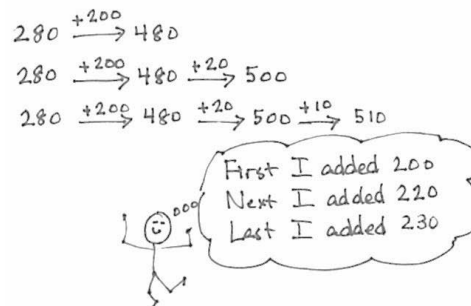 280 +200 → 480
280 +200 → 480 +20 → 500
280 +200 → 480 +20 → 500 +10 → 510
First I added 200
Next I added 220
Last I added 230